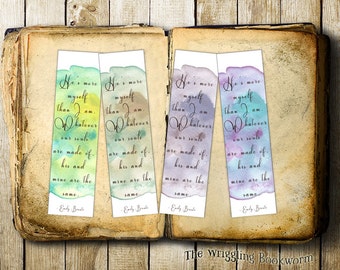 He's more
myself
than I am.
Whatever
our souls
are made of,
his and
mine are the
same.
Emily Brontë
He's more
myself
than I am.
Whatever
our souls
are made of,
his and
mine are the
same.
Emily Brontë
He's more
myself
than I am.
Whatever
our souls
are made of,
his and
mine are the
same.
Emily Brontë
He's more
myself
than I am.
Whatever
our souls
are made of,
his and
mine are the
same.
Emily Brontë
The Wriggling Bookworm